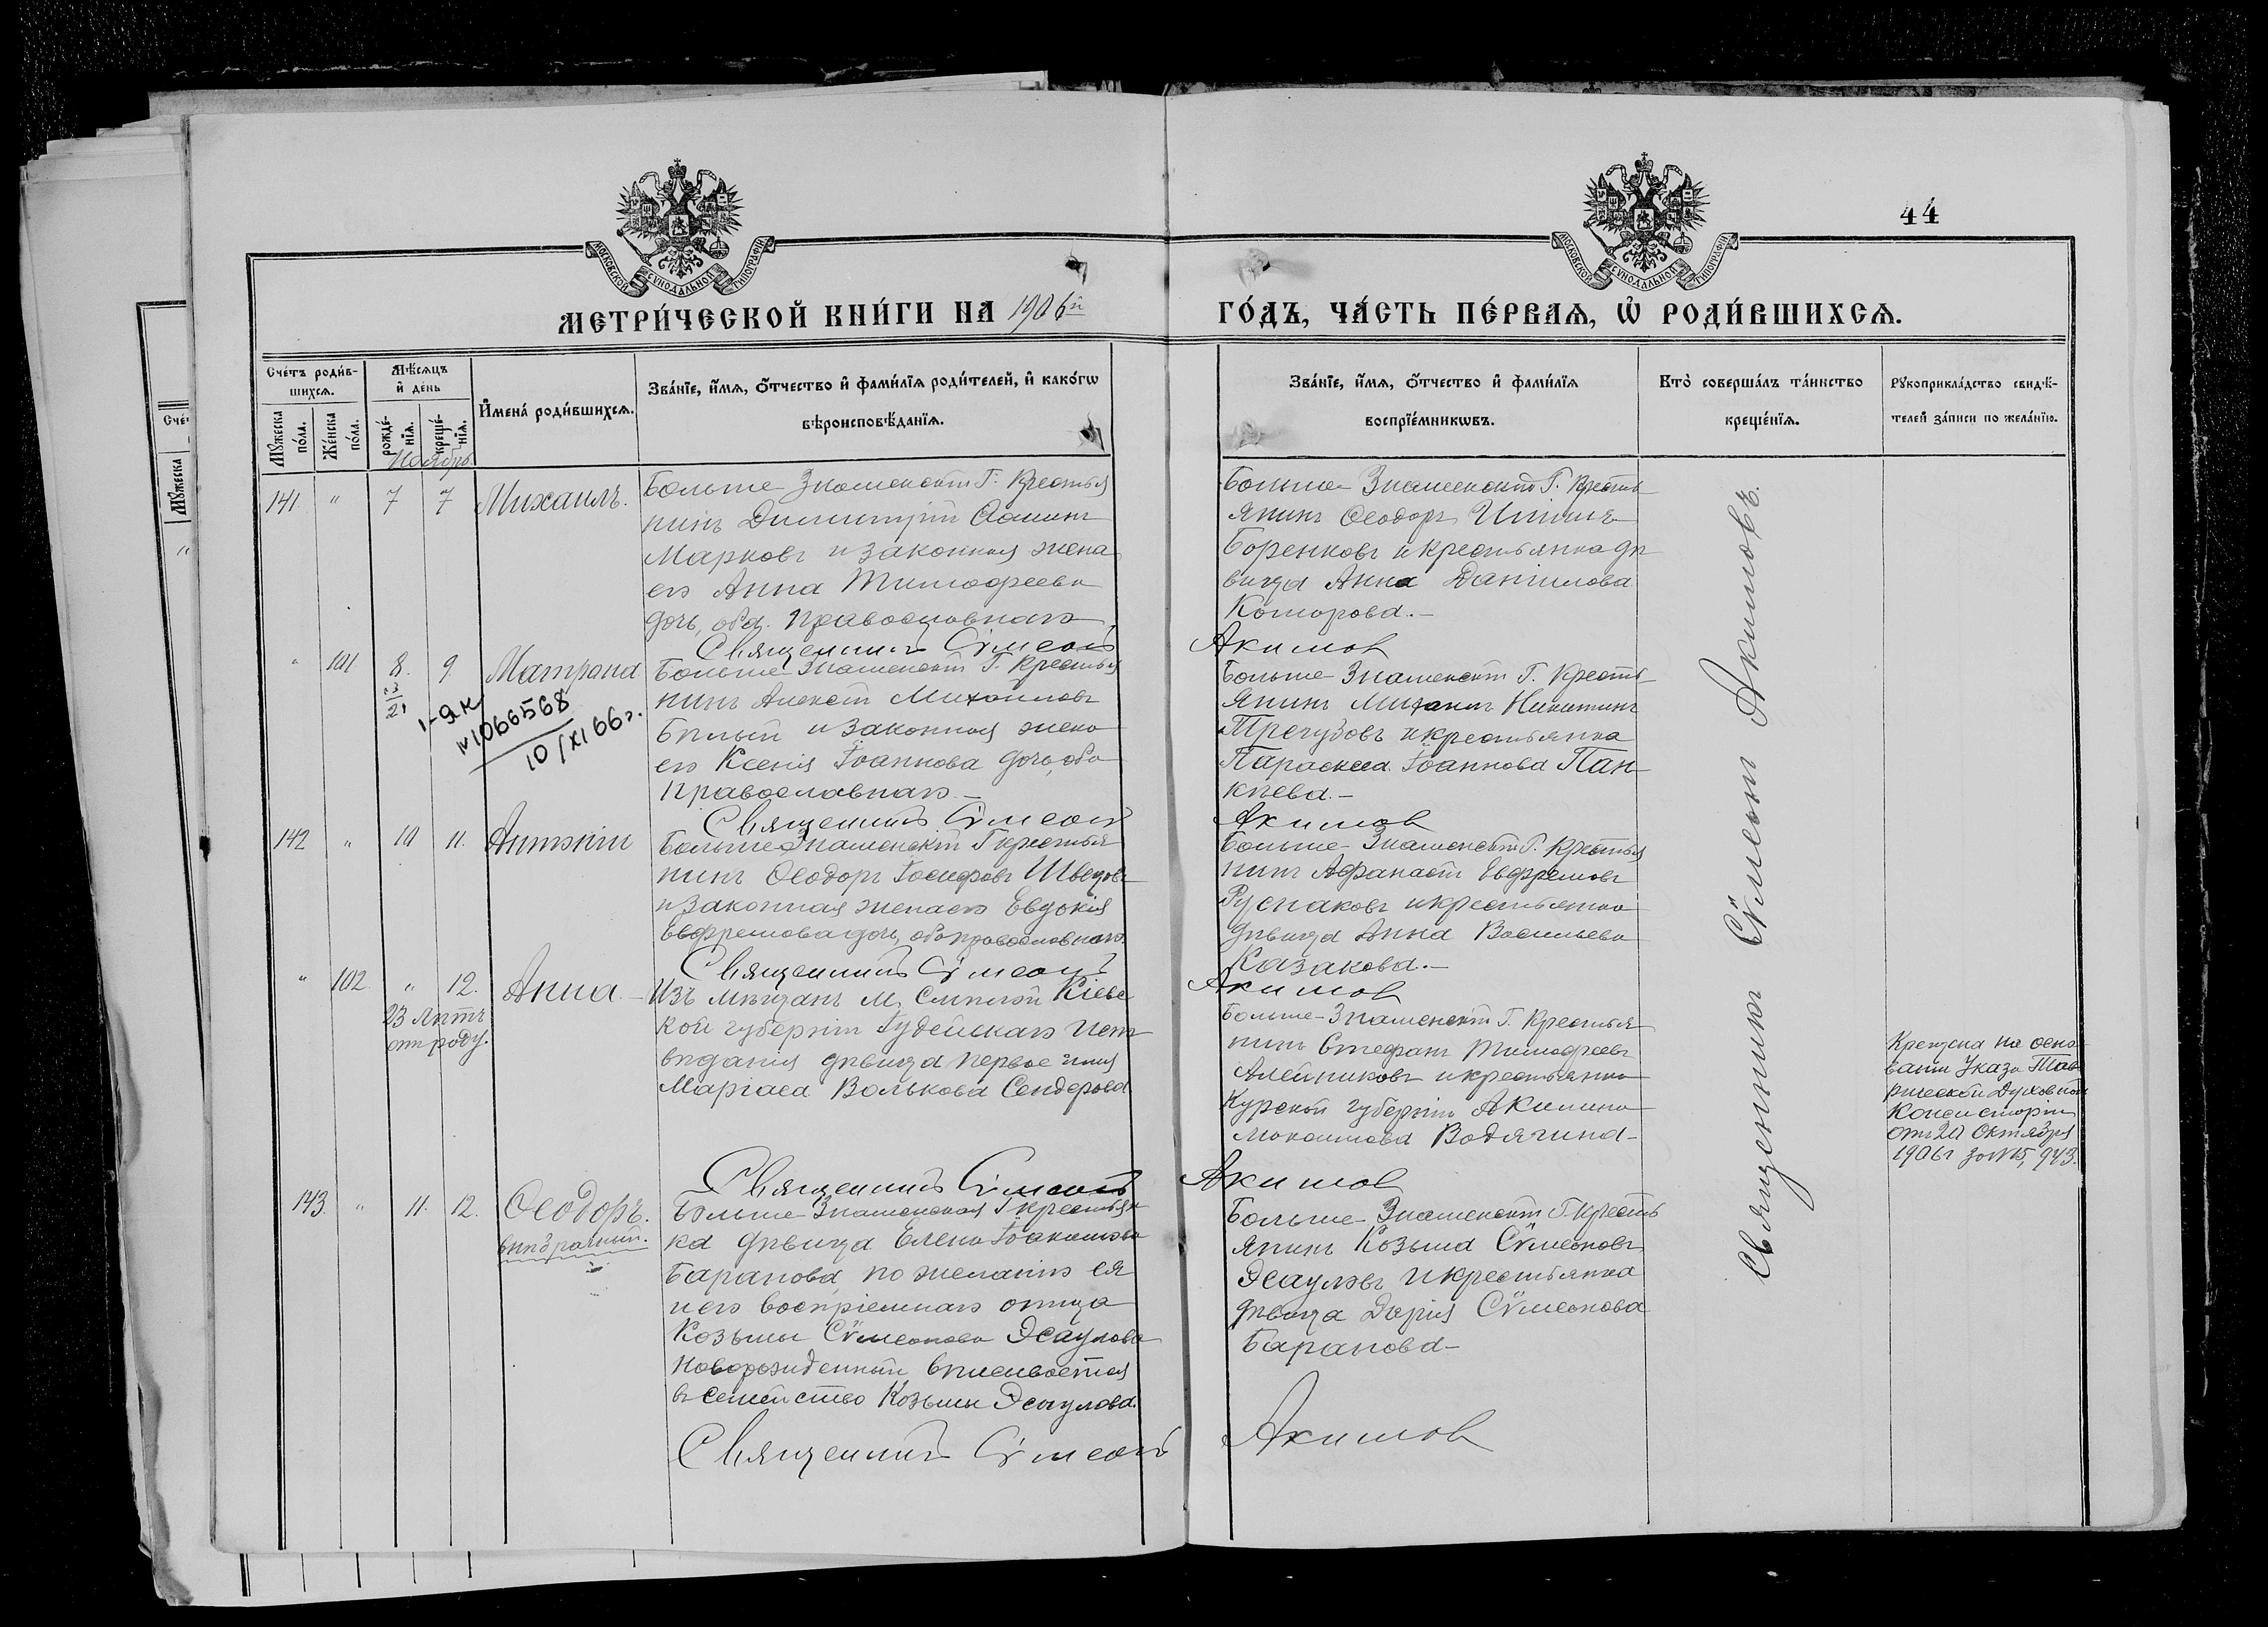 44
МОСКОВСКОЙ СѴНОДАЛЬНОЙ ТИПОГРАФІИ
МОСКОВСКОЙ СѴНОДАЛЬНОЙ ТИПОГРАФІИ
МЕТРИ́ЧЕСКОЙ КНИ́ГИ НА 1906й
ГО́ДЪ, ЧА́СТЬ ПЕ́РВАѦ, Ѿ РОДИ́ВШИХСѦ.
Сче́тъ роди́в-
шихсѧ.
Мꙋ́жеска по́ла.
Же́нска по́ла.
Мѣ́сѧцъ
и҆ де́нь
рожде́-
нїѧ.
креще́-
нїѧ.
И҆мена̀ роди́вшихсѧ.
Зва́нїе, и҆́мѧ, ѻ҆́тчество и҆ фамѝлїѧ роди́телей, и҆ како́гѡ
вѣроисповѣ́данїѧ.
Зва́нїе, и҆́мѧ, ѻ҆́тчество и҆ фамѝлїѧ
воспрїе́мникѡвъ.
Кто̀ соверша́лъ та́инство
креще́нїѧ.
Рꙋкоприкла́дство свидѣ́-
телей за́писи по жела́нїю.
Ноябрь
141 " 7 7 Михаилъ.
Больше-Знаменскій Г. Крестья
нинъ Димитрій
Марковъ и законная жена
его Анна Тимофеева
дочь, оба православнаго
Священникъ Сѵмеонъ
Больше-Знаменскій Г. Кресть
янинъ Ѳеодоръ
Боренковъ и крестьянка дѣ
вица Анна Даніилова
Которова.-
Акимов
" 101 8. 9. Матрона
Больше-Знаменскій Г. Крестья
нинъ Алексій Михаиловъ
Бѣлый и законная жена
его Ксенія Іоаннова дочь, оба
православнаго-
Священникъ Сѵмеонъ
1066568
10/XI 66г.
Больше-Знаменскій Г. Кресть
янинъ Михаилъ Никитинъ
Трегубовъ и крестьянка
Параскева Іоаннова Пан
кѣева.-
Акимов
142 " 10 11.
Больше-Знаменскій Г. крестья
нинъ Ѳеодоръ Іосифовъ Швецовъ
и законная жена его Евдокія
Евфремова дочь, оба православнаго.
Священникъ Сѵмеонъ
Больше-Знаменскій Г. Крестья
нинъ Афанасій Евфремовъ
Руснаковъ и крестьянка
дѣвица Анна Васильева
Казакова.-
Акимов
" 102 " 12. Анна.
23 лѣтъ
отъ роду.
Изъ мѣщанъ м. Кіевс
кой губерніи Іудейскаго испо
вѣданія дѣвица первое имя
Волькова Сендерова
Священникъ Сѵмеонъ
Больше-Знаменскій Г. Крестья
нинъ Стефанъ Тимофеевъ
Алейниковъ и крестьянка
Курской губерніи Акилина
Водягина-
Акимов
Крещена на осно
ваніи Указа Тав
рической Духовной
Консисторіи
отъ 20 Октября
1906г за №15,943.
143 " 11. 12. Ѳеодоръ.
внѣбрачный.
Больше-Знаменская Г. крестьян
ка дѣвица Елена Іоакимова
Баранова, по желанію ея
и его воспріемнаго отца
Козьмы Сѵмеонова Эсаулова
новорожденный вписывается
въ семейство Козьмы Эсаулова.
Священникъ Сѵмеонъ
Больше-Знаменскій Г. кресть
янинъ Козьма Сѵмеоновъ
Эсауловъ и крестьянка
дѣвица Дарія Сѵмеонова
Баранова-
Акимов
Священникъ Сѵмеонъ Акимовъ.